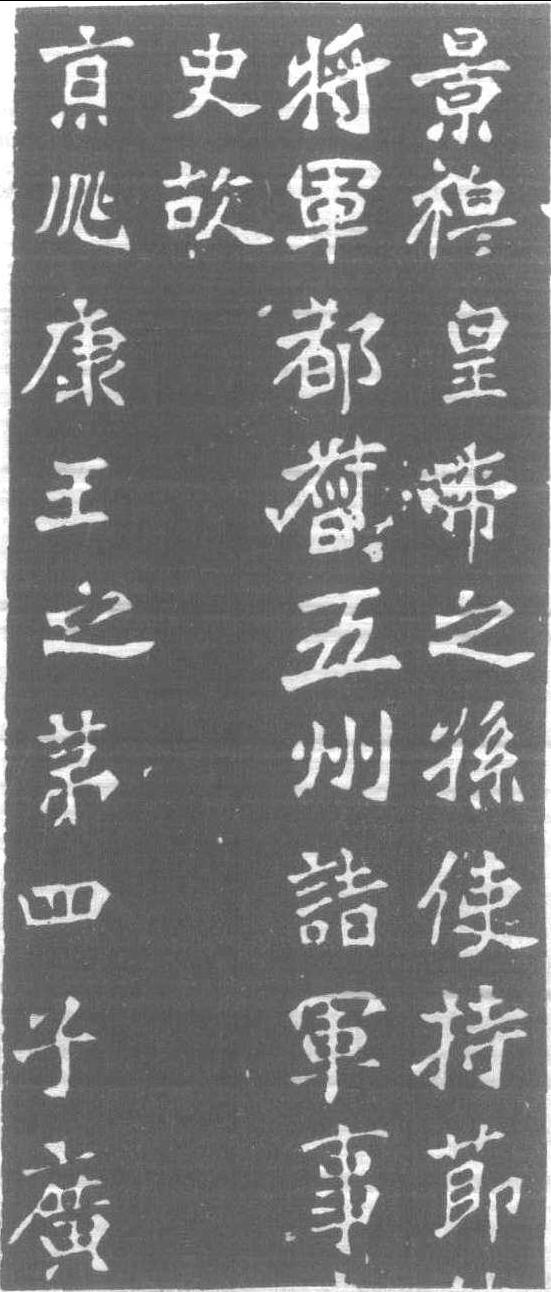 景穆皇帝之孫使持莭
将軍都督五州諸軍事
史故
京兆康王之苐四子廣